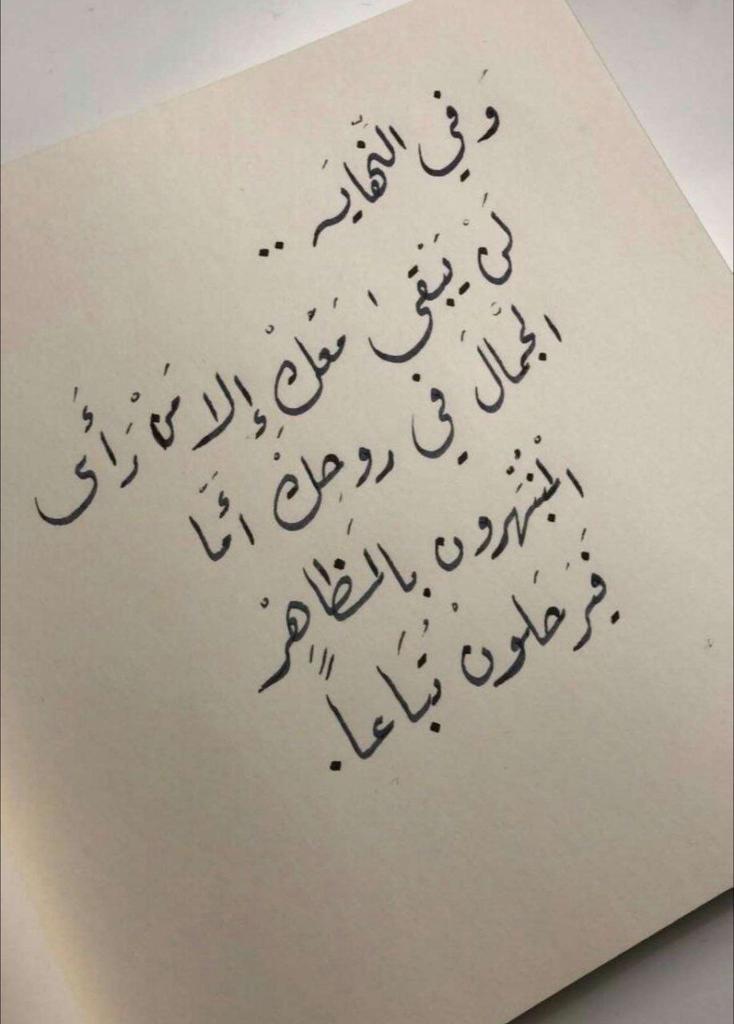 وَفي النَّهايَه ..
لَنْ يَبْقىَ مَعَكْ إِلا مَنْ رَأَى
الجَمَّالَ في روحِكْ أمَّا
المُنْبَهرون بالمَظَاهِرْ
فَيَرحَلونْ تُبَاعاً.